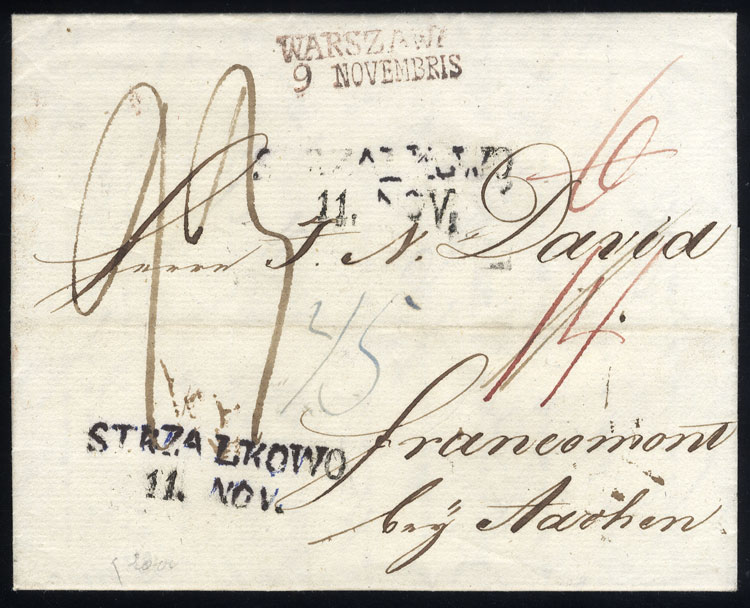 WARSZAWY
9 NOVEMBRIS
STRZAŁKOWO
11. NOV.
Herrn J. N. David
14
Francomont
beÿ Aachen
STRZAŁKOWO
11. NOV.